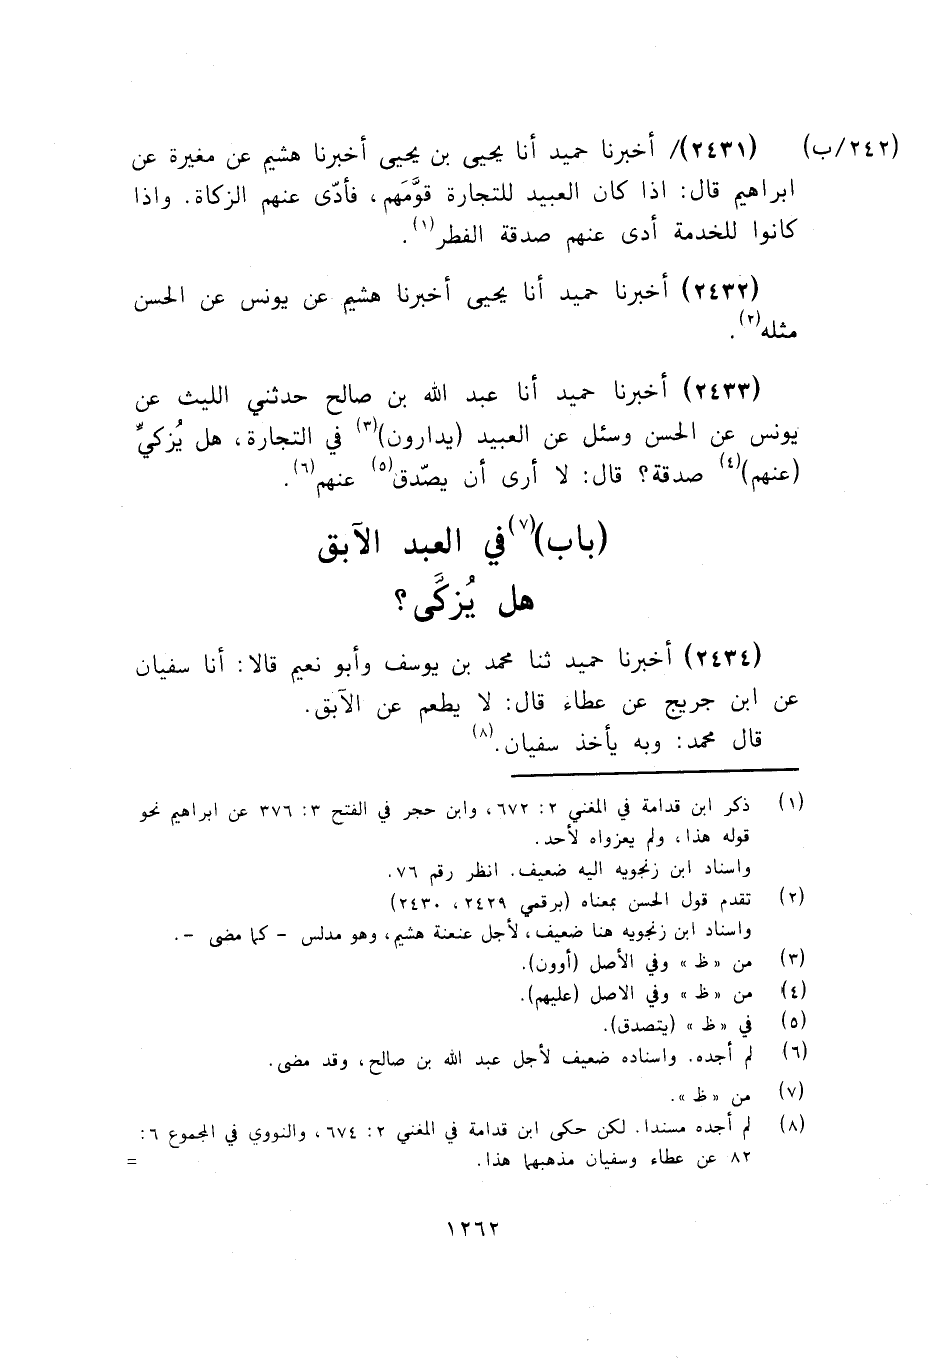 (٢٤٢/ب) (٢٤٣١)/ أخبرنا حميد أنا يحيى بن يحيى أخبرنا هشيم عن مغيرة عن
ابراهيم قال: اذا كان العبيد للتجارة قوَّمَهم، فأدّى عنهم الزكاة. واذا
كانوا للخدمة أدى عنهم صدقة الفطر(١).
(٢٤٣٢) أخبرنا حميد أنا يحيى أخبرنا هشيم عن يونس عن الحسن
مثله(٢).
(٢٤٣٣) أخبرنا حميد أنا عبد الله بن صالح حدثني الليث عن
يونس عن الحسن وسئل عن العبيد (يدارون)(٣) في التجارة، هل يُزكيّ
(عنهم)(٤) صدقة؟ قال: لا أرى أن يصّدق(٥) عنهم(٦).
(باب)(٧) في العبد الآبق
هل يُزكَّى؟
(٢٤٣٤) أخبرنا حميد ثنا محمد بن يوسف وأبو نعيم قالا: أنا سفيان
عن ابن جريج عن عطاء قال: لا يطعم عن الآبق.
قال محمد: وبه يأخذ سفيان.(٨)
(١) ذكر ابن قدامة في المغني ٢: ٦٧٢، وابن حجر في الفتح ٣: ٣٧٦ عن ابراهيم نحو
قوله هذا، ولم يعزواه لأحد.
واسناد ابن زنجويه اليه ضعيف. انظر رقم ٧٦.
(٢) تقدم قول الحسن بمعناه (برقمي ٢٤٢٩، ٢٤٣٠)
واسناد ابن زنجويه هنا ضعيف، لأجل عنعنة هشيم، وهو مدلس - كما مضى -.
(٣) من «ظ» وفي الأصل (أوون).
(٤) من «ظ» وفي الاصل (عليهم).
(٥) في «ظ» (يتصدق).
(٦) لم أجده. واسناده ضعيف لأجل عبد الله بن صالح، وقد مضى.
(٧) من «ظ».
(٨) لم أجده مسندا. لكن حكى ابن قدامة في المغني ٢: ٦٧٤، والنووي في المجموع ٦:
٨٢ عن عطاء وسفيان مذهبهما هذا. =
١٢٦٢